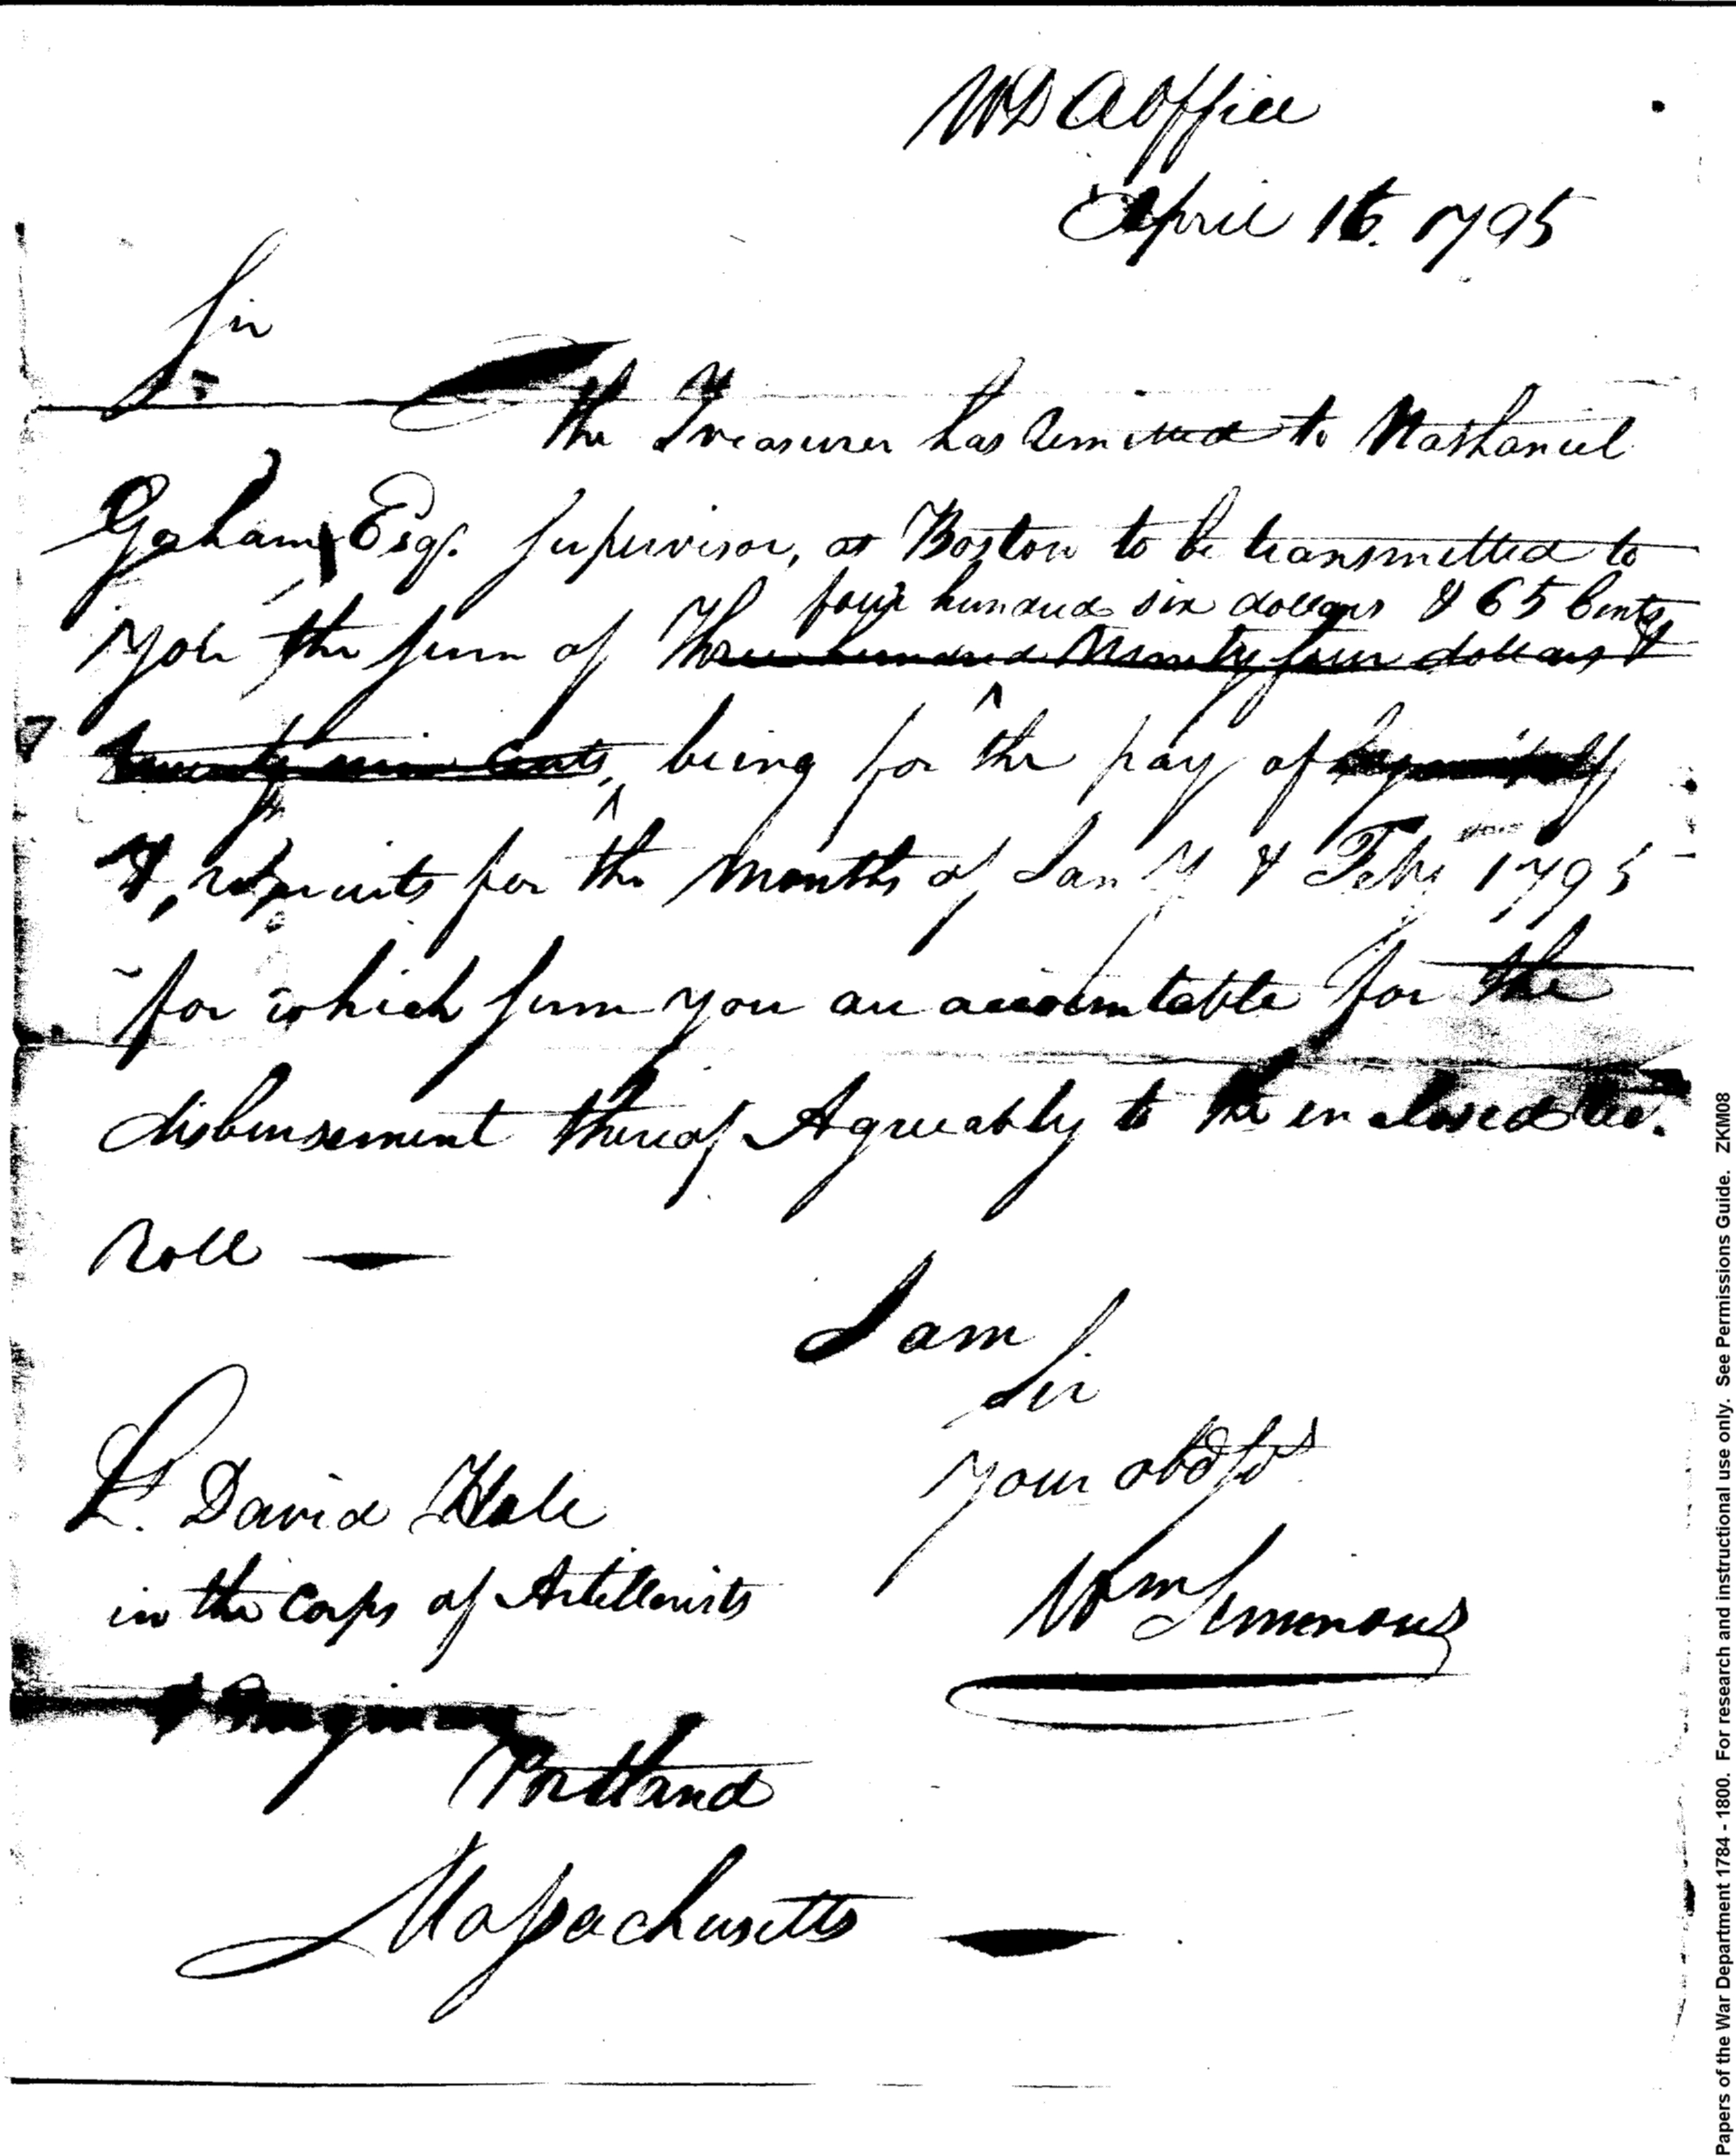 WD A Office
April 16. 1795
Sir
The Treasurer has remitted to Nathaniel
Goham Esqr. Supervisor, at Boston to be transmitted to
four hundred six dollars & 65 Cents
you the sum of Three hundred Ninety four dollars &
twenty nine Cents, being for the pay of
&, recruits for the months of Jany & Feby 1795
for which sum you are accountable for the
disbursement thereof Agreeably to the enclosed rec.
Roll —
I am
Sir
Your obd St
Wm Simmons
Lt. David Hale
in the Corps of Artillerists
& Engineers
Portland
Massachusetts —
Papers of the War Department 1784 - 1800. For research and instructional use only. See Permissions Guide. ZKM08